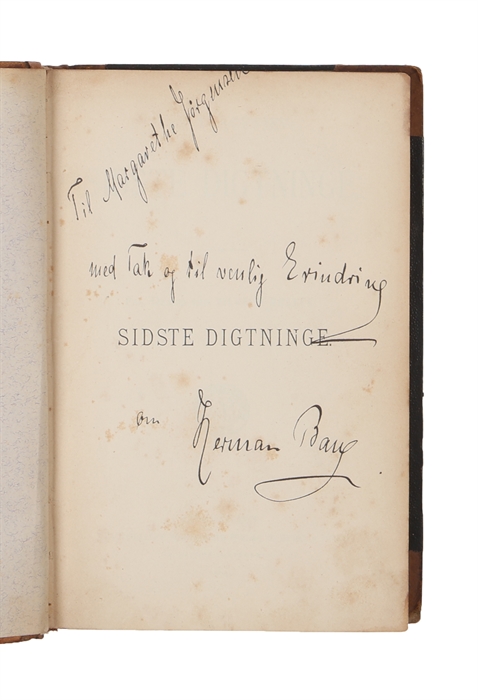 Til Margarethe Jörgensen
med Tak og til venlig Erindring
SIDSTE DIGTNINGE.
om Herman Bang